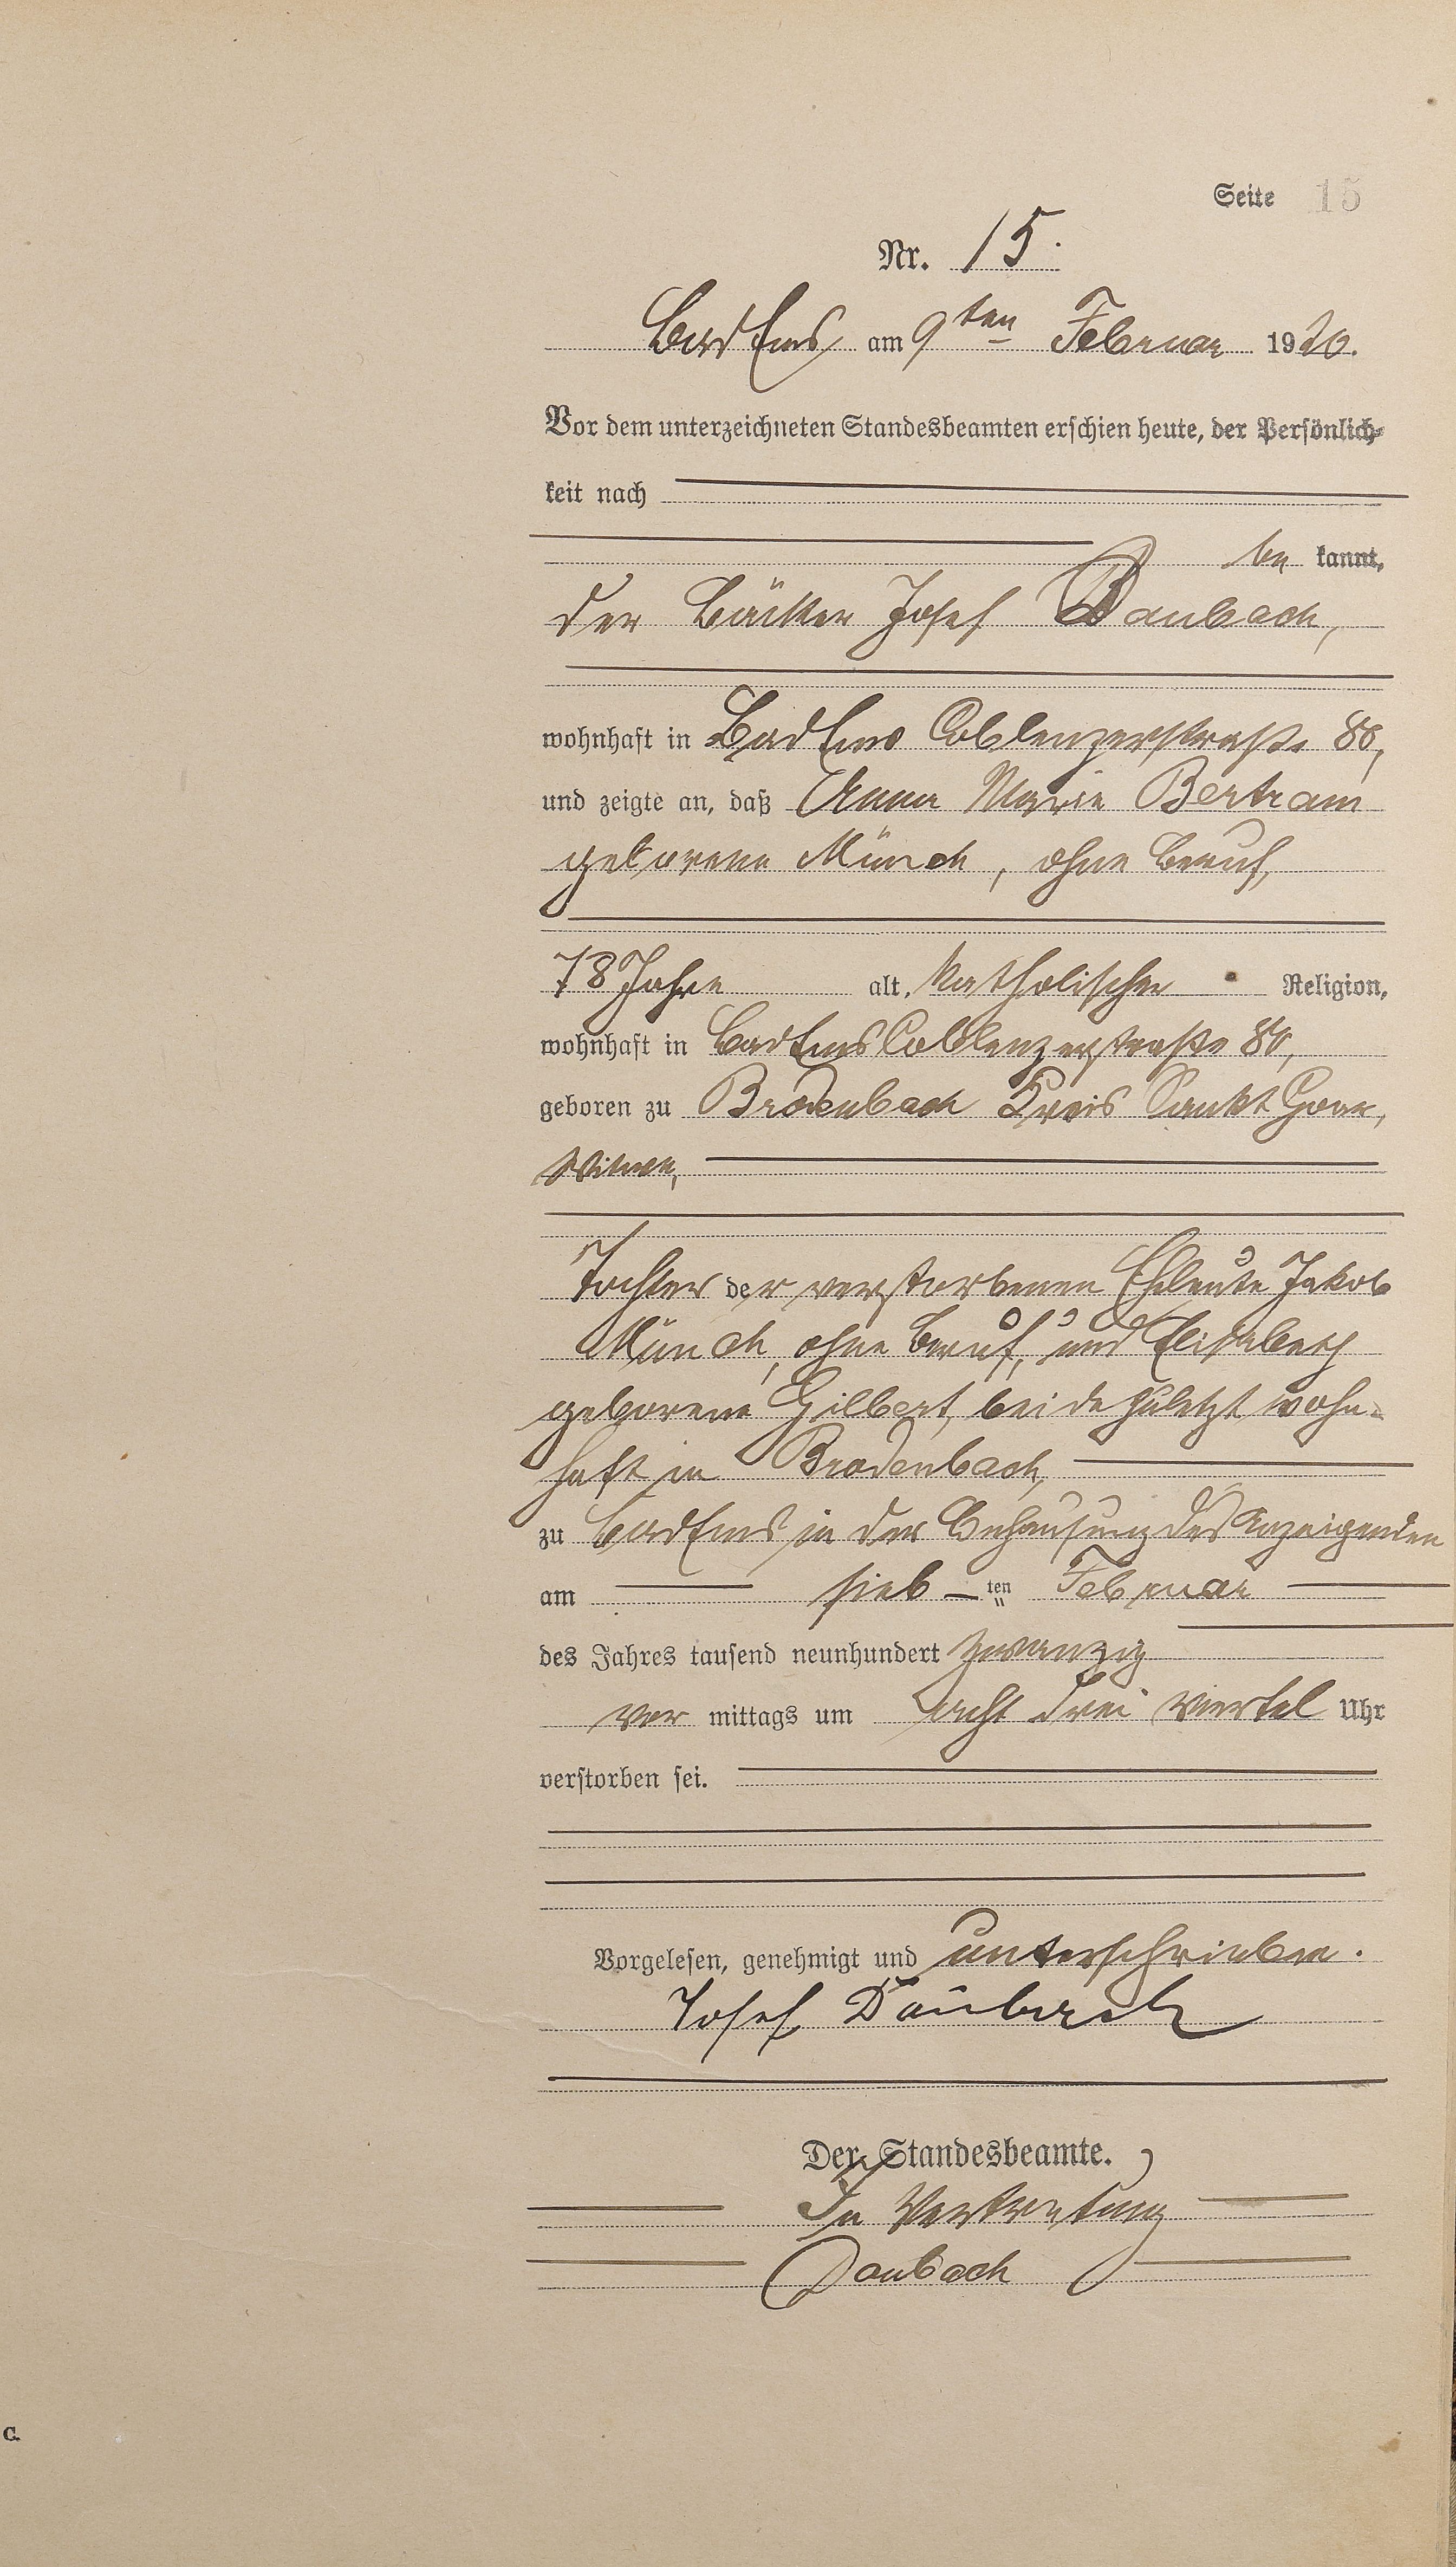 Seite 15
Nr. 15.
Bad Ems am 9ten Februar 1920.
Vor dem unterzeichneten Standesbeamten erschien heute, der Persönlich-
keit nach
be kannt,
der Bäcker Josef Daubach,
wohnhaft in Bad Ems Coblenzerstraße 80,
und zeigte an, daß Anna Maria Bertram
geborene Münch, ohne Beruf,
78 Jahre alt, katholischer Religion,
wohnhaft in Bad Ems Coblenzerstraße 80,
geboren zu Brodenbach Kreis Sankt Goar,
Witwe,
Tochter der verstorbenen Eheleute Jakob
Münch, ohne Beruf, und Elisabeth
geborene Gilbert, beide zuletzt wohn-
haft in Brodenbach,
zu Bad Ems in der Behausung des Anzeigenden
am sieb-ten Februar
des Jahres tausend neunhundert zwanzig
vor mittags um acht drei viertel Uhr
verstorben sei.
Vorgelesen, genehmigt und unterschrieben.
Josef Daubach
Der Standesbeamte.
In Vertretung
Daubach
C.